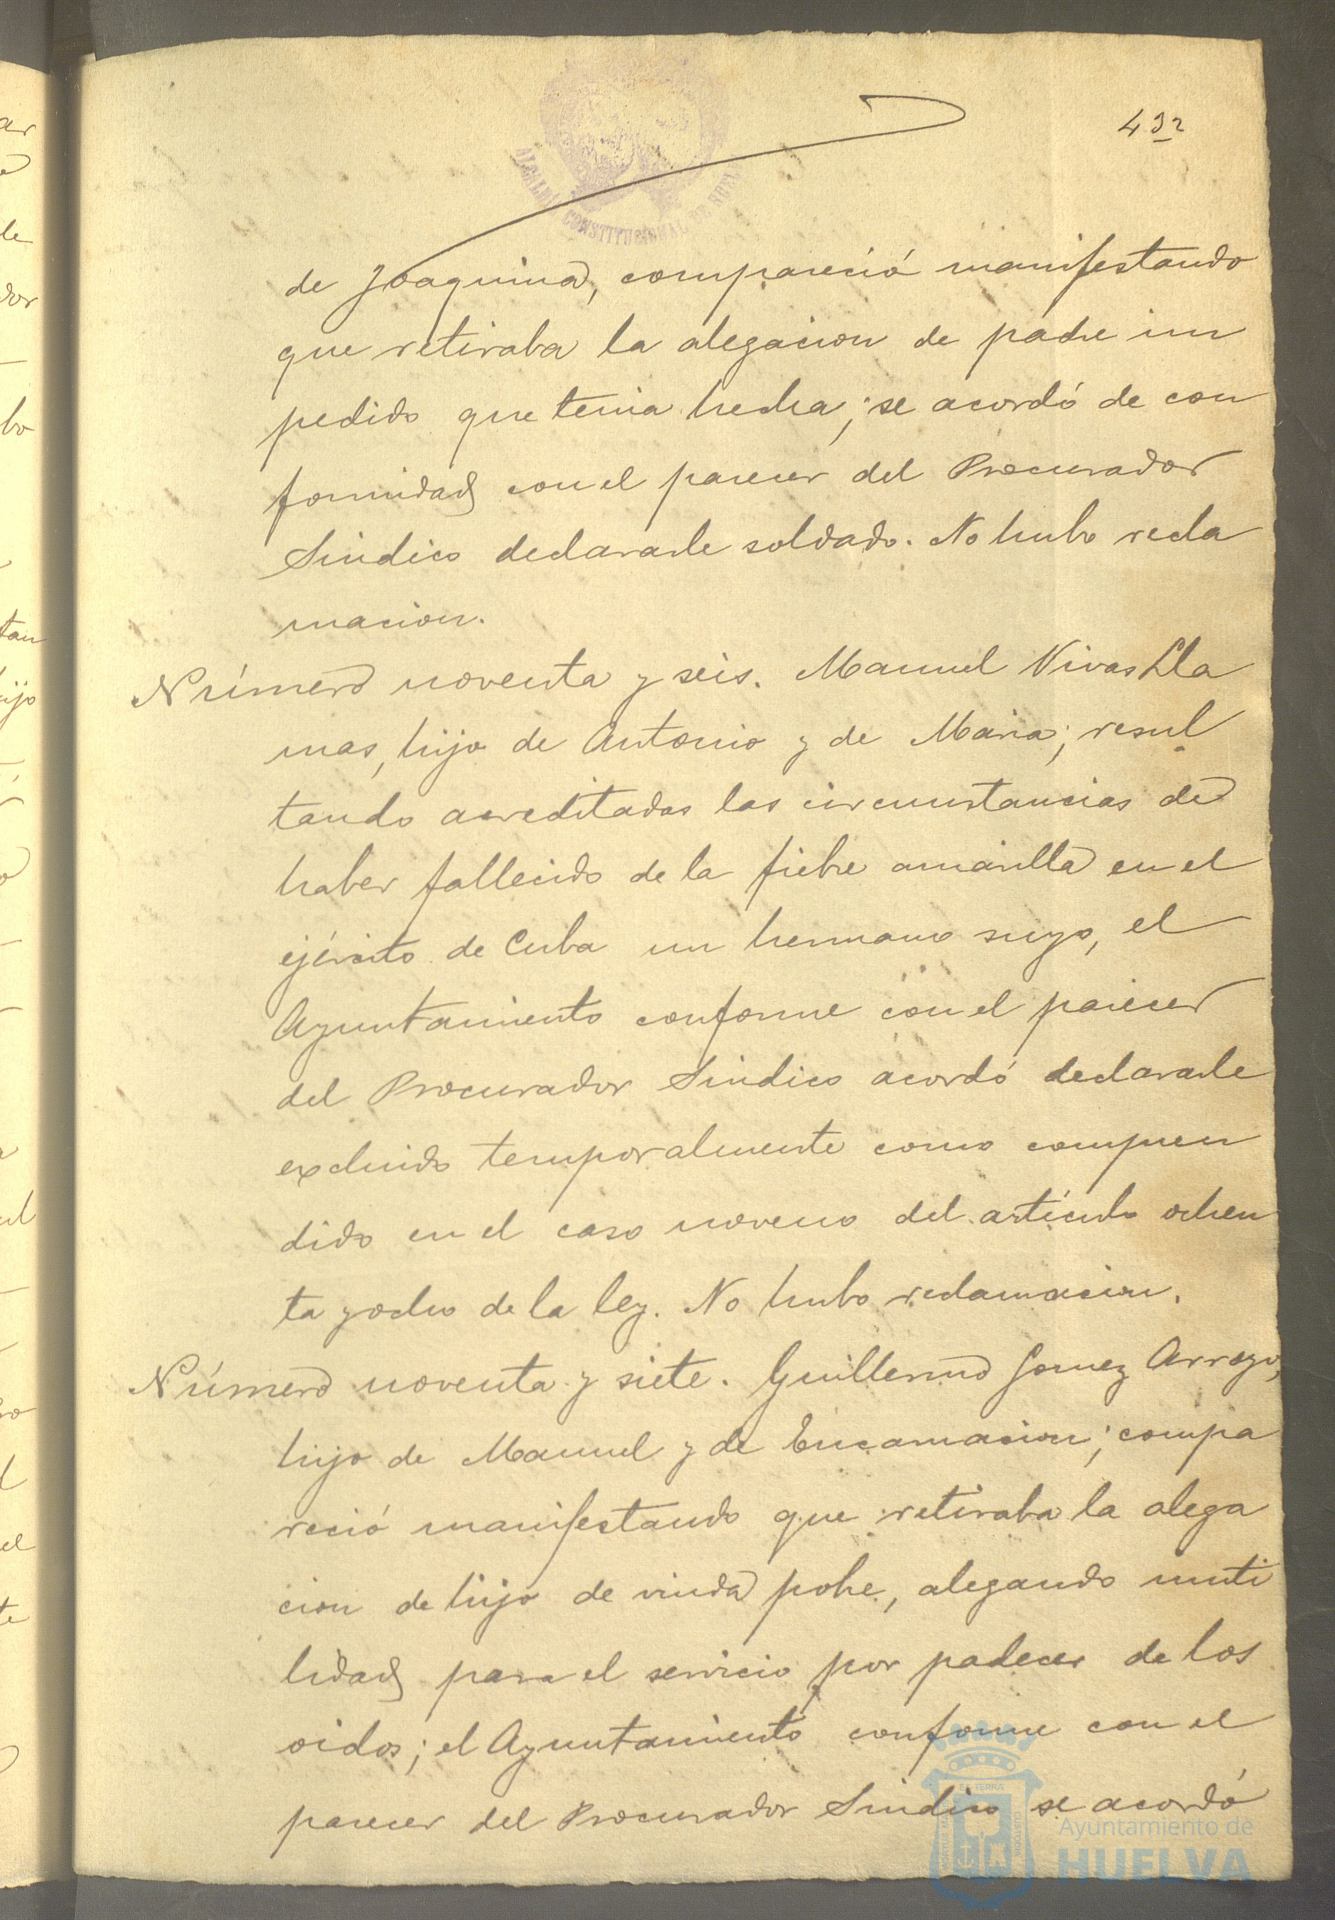 432
ALCALDIA CONSTITUCIONAL DE HUEL
de Joaquina, compareció manifestando
que retiraba la alegacion de padre im
pedido que tenia hecha; se acordó de con
formidad con el parecer del Procurador
Sindico declararle soldado. No hubo recla
macion.
Número noventa y seis. Manuel Vivas Lla
mas, hijo de Antonio y de Maria; resul
tando acreditadas las circunstancias de
haber fallecido de la fiebre amarilla en el
ejército de Cuba un hermano suyo, el
Ayuntamiento conforme con el parecer
del Procurador Sindico acordó declararle
excluido temporalmente como compren
dido en el caso noveno del artículo ochen
ta y ocho de la ley. No hubo reclamacion.
Número noventa y siete. Guillermo Gomez Arroyo,
hijo de Manuel y de Encarnacion; compa
reció manifestando que retiraba la alega
cion de hijo de viuda pobre, alegando inuti
lidad para el servicio por padecer de los
oidos; el Ayuntamiento conforme con el
parecer del Procurador Sindico se acordó
Ayuntamiento de
HUELVA